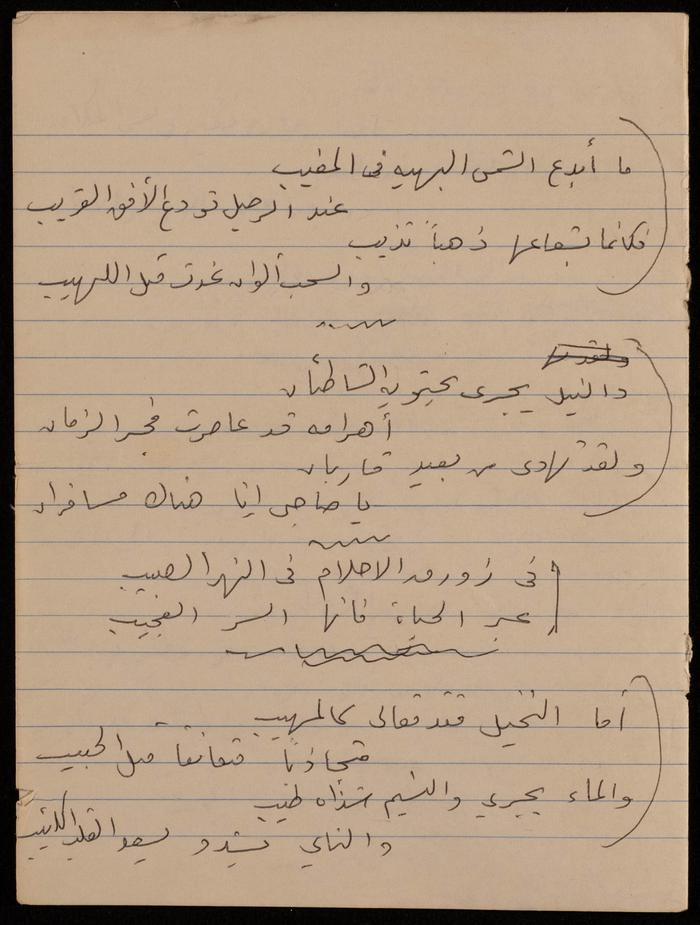 ما أبدع الشمس البهيه فى المغيب
عند الرحيل تودع الأفق القريب
فكأنما بشعاعها ذهباً تذيب
والسحب ألوان غدت مثل اللهيب
والنيل يجرى يحتويه الشاطئان
أهرامه قد عاصرت فجر الزمان
ولقد تهادى من بعيد قاربان
يا صاحبى انا هناك مسافران
فى زورق الاحلام فى النهر الحبيب
عبر الحياة فانها السر العجيب
أما النخيل فقد تعالى كالمهيب
متجاذباً متعانقاً مثل الحبيب
والماء يجري والنسيم شذاه طيب
والناي يشدو يسعد القلب الكئيب